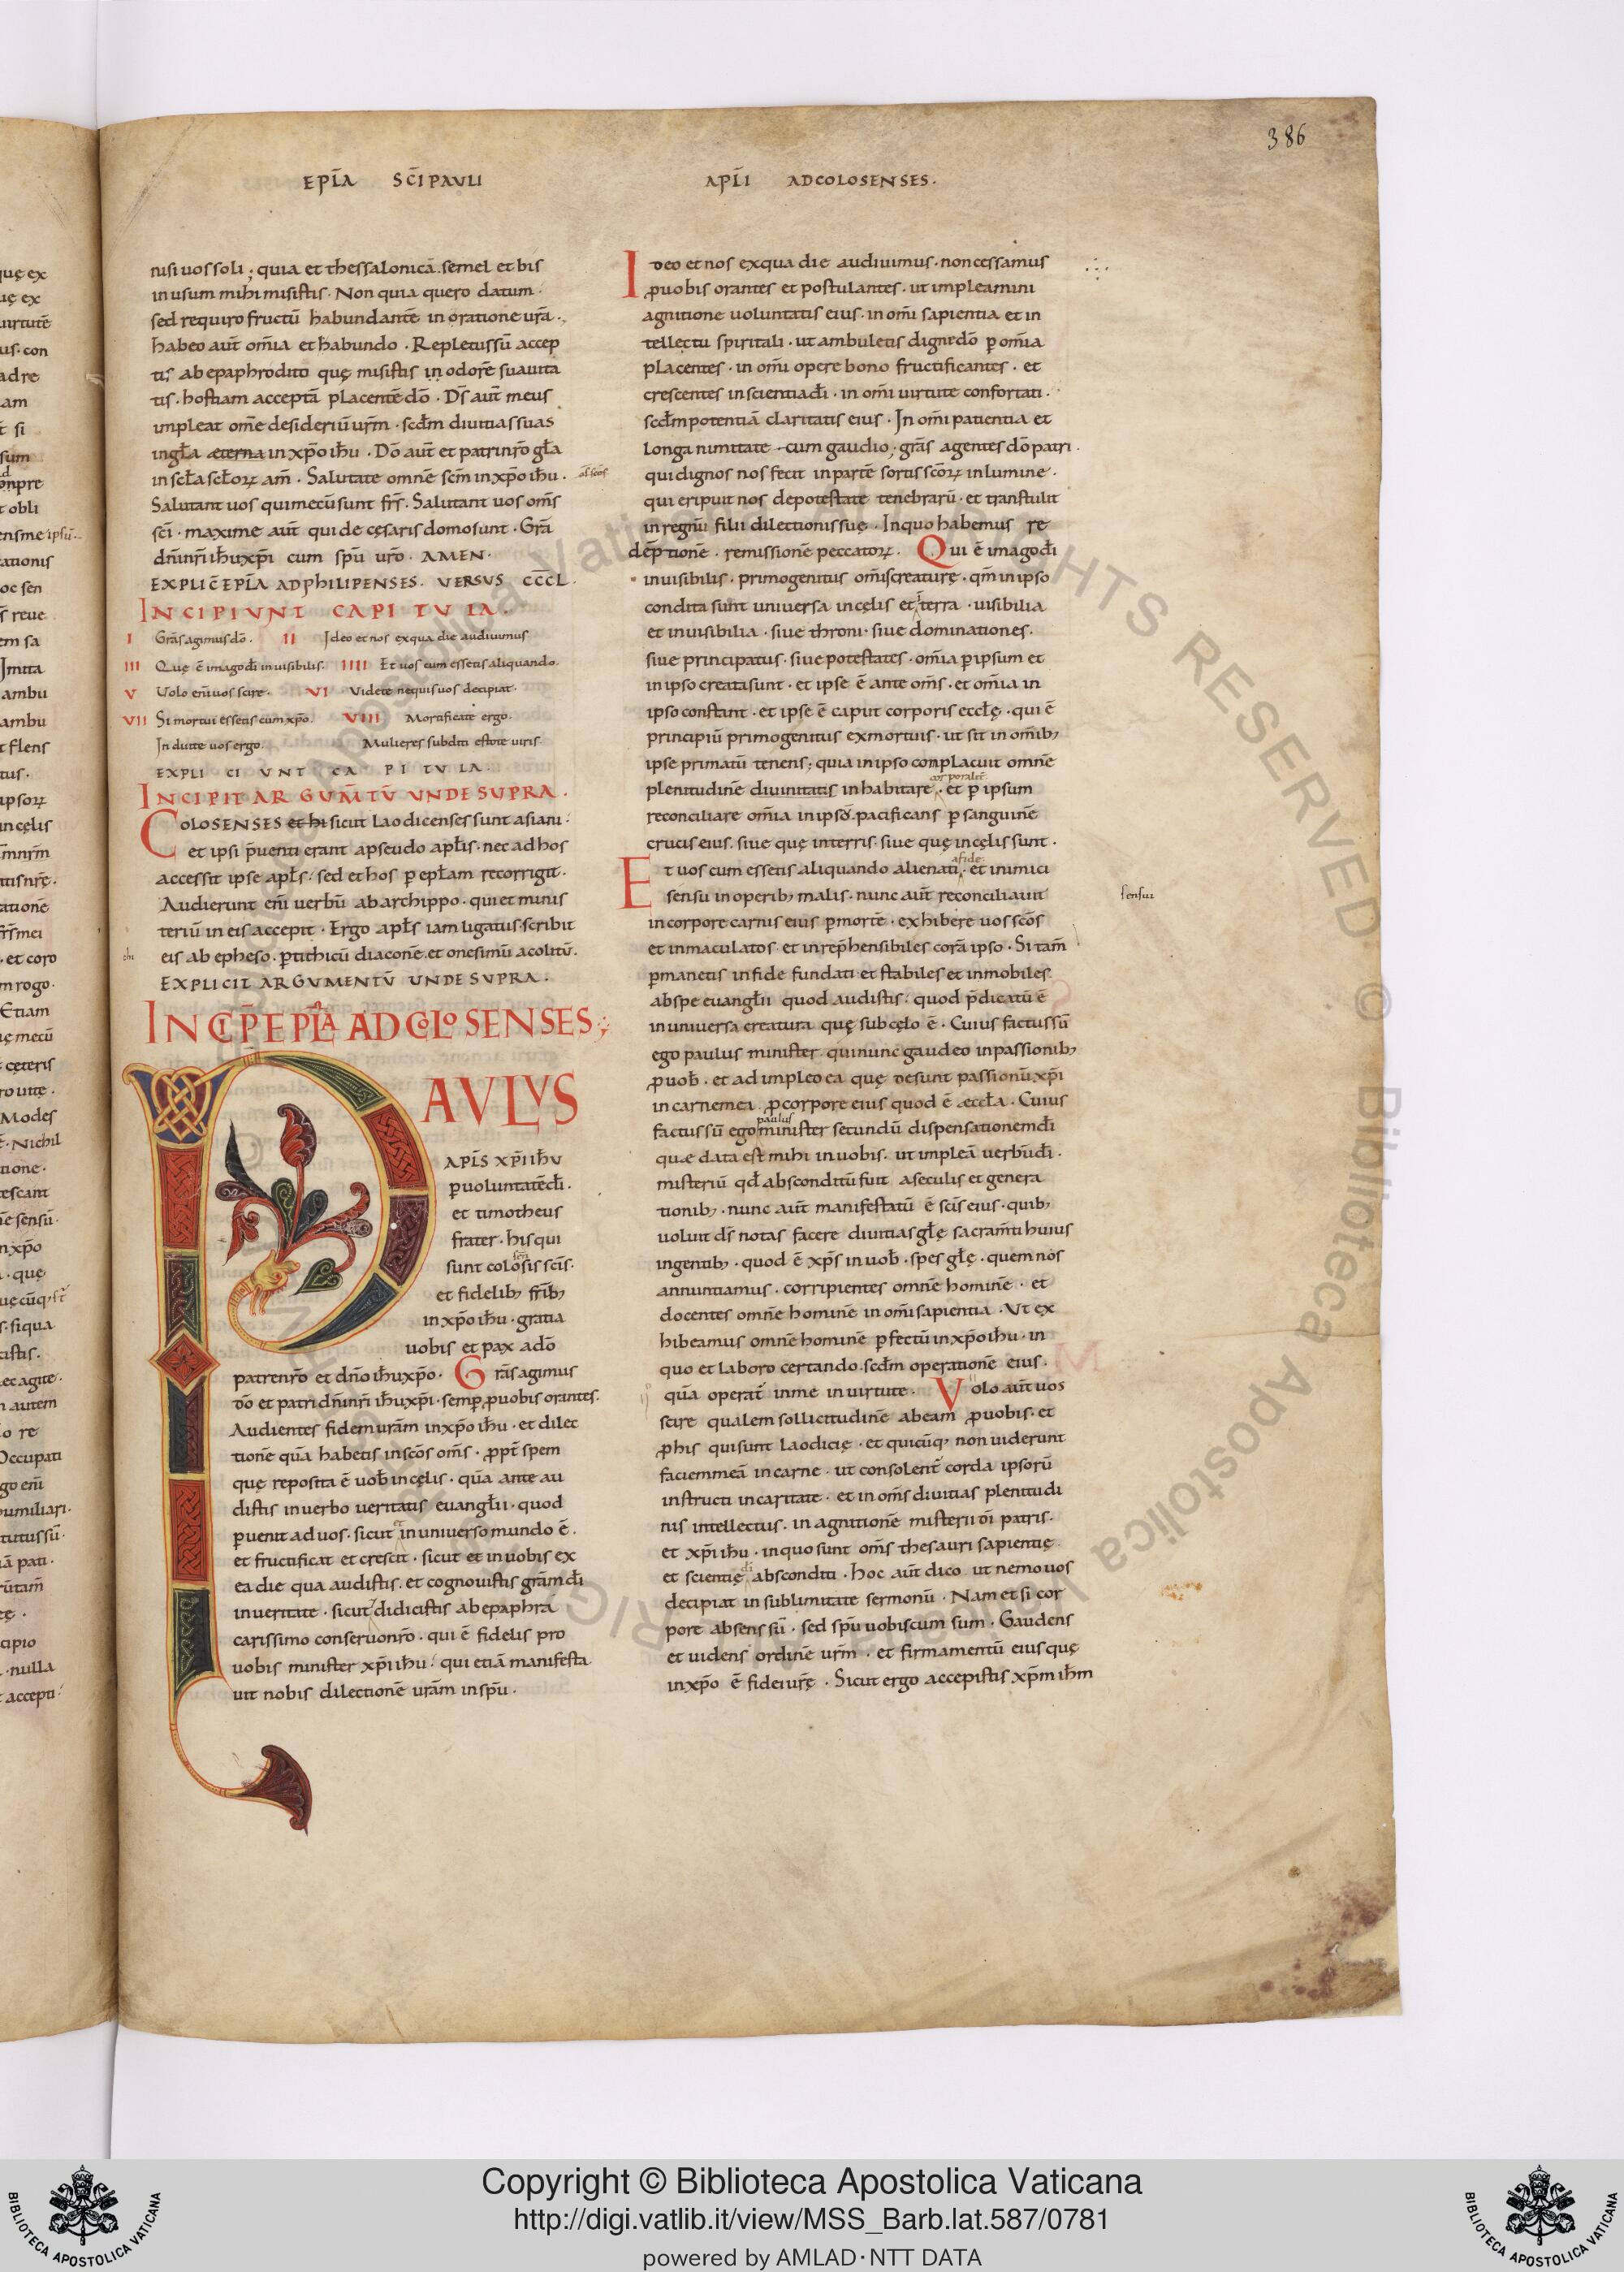 386
EPL̄A SC̄I PAVLI
APL̄I ADCOLOSENSES.
nisi uos soli; quia et thessalonicā. semel et bis
in usum mihi misistis. Non quia quero datum.
sed requiro fructū habundantē in oratione ur̄a.
habeo aut̄ om̄ia et habundo. Repletus sū accep
tis ab epaphrodito quę misistis in odorē suauita
tis. hostiam acceptā placentē dō. Ds̄ aut̄ meus
impleat om̄e desideriū ur̄m. scđm diuitias suas
in gła eterna in xp̄o ihu. Dō aut̄ et patri nr̄o gła
in scła scłoꝝ am̄. Salutate omnē sc̄m in xp̄o ihu.
Salutant uos qui mecū sunt fr̄s. Salutant uos om̄s
sc̄i. maxime aut̄ qui de cęsaris domo sunt. Gr̄a
dn̄i nr̄i ihu xp̄i cum sp̄u ur̄o. AMEN.
EXPLIC̄ EPL̄A ADPHILIPENSES. VERSUS CCCL.
INCIPIUNT CAPITULA.
I Gr̄as agimus dō. II Ideo et nos ex qua die audiuimus
III Quę ē imago dī inuisibilis. IIII Et uos cum essetis aliquando.
V Uolo eni uos scire. VI Videte nequis uos decipiat.
VII Si mortui essetis cum xp̄o. VIII Mortificate ergo.
Induite uos ergo. Mulieres subditi estote uiris.
EXPLICIUNT CAPITULA.
INCIPIT ARGUM̄TŪ UNDE SUPRA.
COLOSENSES et hi sicut laodicenses sunt asiani.
et ipsi p̄uenti erant a pseudo apłis. nec ad hos
accessit ipse apłs. sed et hos p epłam recorrigit.
Audierunt eni uerbū ab archippo. qui et minis
teriū in eis accepit. Ergo apłs iam ligatus scribit
eis ab epheso. p tithicū diaconē. et onesimū acolitū.
EXPLICIT ARGUMENTŪ UNDE SUPRA.
INCIP̄ EPL̄A AD COLOSENSES;
PAULUS
APL̄S XP̄I IHU
p uoluntatē dī.
et timotheus
frater. his qui
sunt colosis sc̄is.
et fidelib; fr̄ib;
in xp̄o ihu. gratia
uobis et pax a dō
patre nr̄o et dn̄o ihu xp̄o. Gr̄as agimus
dō et patri dn̄i nr̄i ihu xp̄i. semp p uobis orantes.
Audientes fidem ur̄am in xp̄o ihu. et dilec
tionē quā habetis in sc̄os om̄s. ppt̄ spem
quę reposita ē uob̄ in cęlis. quā ante au
distis in uerbo ueritatis euangłii. quod
puenit ad uos. sicut in uniuerso mundo ē.
et fructificat et crescit. sicut et in uobis ex
ea die qua audistis. et cognouistis gr̄am dī
in ueritate. sicut didicistis ab epaphra
carissimo conseruo nr̄o. qui ē fidelis pro
uobis minister xp̄i ihu. qui etiā manifesta
uit nobis dilectionē ur̄am in sp̄u.
Ideo et nos ex qua die audiuimus. non cessamus
p uobis orantes et postulantes. ut impleamini
agnitione uoluntatis eius. in om̄i sapientia et in
tellectu spiritali. ut ambuletis digne dō p om̄ia
placentes. in om̄i opere bono fructificantes. et
crescentes in scientia dī. in om̄i uirtute confortati.
scđm potentiā claritatis eius. In om̄i patientia et
longanimitate cum gaudio; gr̄as agentes dō patri.
qui dignos nos fecit in partē sortis sc̄oꝝ in lumine.
qui eripuit nos de potestate tenebrarū. et transtulit
in regnū filii dilectionis suę. In quo habemus re
dēptionē. remissionē peccatoꝝ. Qui ē imago dī
inuisibilis. primogenitus om̄is creaturę. qm̄ in ipso
condita sunt uniuersa in cęlis et terra. uisibilia
et inuisibilia. siue throni. siue dominationes.
siue principatus. siue potestates. om̄ia p ipsum et
in ipso creata sunt. et ipse ē ante om̄s. et om̄ia in
ipso constant. et ipse ē caput corporis eccłę. qui ē
principiū primogenitus ex mortuis. ut sit in om̄ib;
ipse primatū tenens; quia in ipso complacuit omnē
corporalit̄
plenitudinē diuinitatis inhabitare. et p ipsum
reconciliare om̄ia in ipsō. pacificans p sanguinē
crucis eius. siue quę in terris. siue quę in cęlis sunt.
a fide
Et uos cum essetis aliquando alienati. et inimici
sensu in operib; malis. nunc aut̄ reconciliauit
sensui
in corpore carnis eius p mortē. exhibere uos sc̄os
et inmaculatos. et inrep̄hensibiles corā ipso. Si tam̄
pmanetis in fide fundati et stabiles et inmobiles
ab spe euangłii quod audistis. quod p̄dicatū ē
in uniuersa creatura quę sub cęlo ē. Cuius factus sū
ego paulus minister. qui nunc gaudeo in passionib;
p uob̄. et adimpleo ea quę desunt passionū xp̄i
in carne mea. p corpore eius quod ē æccła. Cuius
paulus
factus sū ego minister secundū dispensationem dī
quæ data est mihi in uobis. ut impleā uerbū dī.
misteriū qđ absconditū fuit a seculis et genera
tionib;. nunc aut̄ manifestatū ē sc̄is eius. quib;
uoluit ds̄ notas facere diuitias głę sacram̄ti huius
in gentib;. quod ē xp̄s in uob̄. spes głę. quem nos
annuntiamus. corripientes omnē hominē. et
docentes omnē hominē in om̄i sapientia. Ut ex
hibeamus omnē hominē pfectū in xp̄o ihu. in
quo et laboro certando. scđm operationē eius.
quā operat̄ in me in uirtute. Volo aut̄ uos
scire qualem sollicitudinē abeam p uobis. et
p his qui sunt laodicię. et quicūq; non uiderunt
faciem meā in carne. ut consolent̄ corda ipsorū
instructi in caritate. et in om̄s diuitias plenitudi
nis intellectus. in agnitionē misterii dī patris.
et xp̄i ihu. in quo sunt om̄s thesauri sapientię
et scientię absconditi. Hoc aut̄ dico ut nemo uos
decipiat in sublimitate sermonū. Nam et si cor
pore absens sū. sed sp̄u uobiscum sum. Gaudens
et uidens ordinē ur̄m. et firmamentū eius quę
in xp̄o ē fidei ur̄ę. Sicut ergo accepistis xp̄m ihm
Copyright © Biblioteca Apostolica Vaticana
http://digi.vatlib.it/view/MSS_Barb.lat.587/0781
powered by AMLAD·NTT DATA